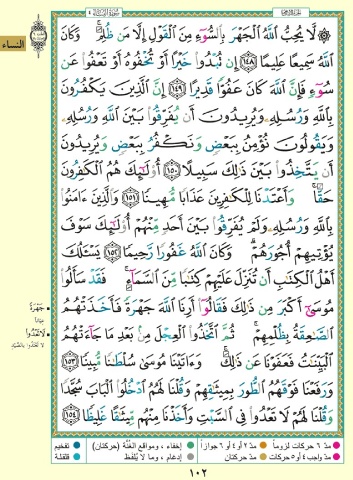 سورة النساء ٤
النساء
۞ لَّا يُحِبُّ ٱللَّهُ ٱلْجَهْرَ بِٱلسُّوٓءِ مِنَ ٱلْقَوْلِ إِلَّا مَن ظُلِمَ ۚ وَكَانَ
ٱللَّهُ سَمِيعًا عَلِيمًا ١٤٨ إِن تُبْدُوا۟ خَيْرًا أَوْ تُخْفُوهُ أَوْ تَعْفُوا۟ عَن
سُوٓءٍ فَإِنَّ ٱللَّهَ كَانَ عَفُوًّا قَدِيرًا ١٤٩ إِنَّ ٱلَّذِينَ يَكْفُرُونَ
بِٱللَّهِ وَرُسُلِهِۦ وَيُرِيدُونَ أَن يُفَرِّقُوا۟ بَيْنَ ٱللَّهِ وَرُسُلِهِۦ
وَيَقُولُونَ نُؤْمِنُ بِبَعْضٍ وَنَكْفُرُ بِبَعْضٍ وَيُرِيدُونَ
أَن يَتَّخِذُوا۟ بَيْنَ ذَٰلِكَ سَبِيلًا ١٥٠ أُو۟لَـٰٓئِكَ هُمُ ٱلْكَـٰفِرُونَ
حَقًّا ۚ وَأَعْتَدْنَا لِلْكَـٰفِرِينَ عَذَابًا مُّهِينًا ١٥١ وَٱلَّذِينَ ءَامَنُوا۟
بِٱللَّهِ وَرُسُلِهِۦ وَلَمْ يُفَرِّقُوا۟ بَيْنَ أَحَدٍ مِّنْهُمْ أُو۟لَـٰٓئِكَ سَوْفَ
يُؤْتِيهِمْ أُجُورَهُمْ ۗ وَكَانَ ٱللَّهُ غَفُورًا رَّحِيمًا ١٥٢ يَسْـَٔلُكَ
أَهْلُ ٱلْكِتَـٰبِ أَن تُنَزِّلَ عَلَيْهِمْ كِتَـٰبًا مِّنَ ٱلسَّمَآءِ ۚ فَقَدْ سَأَلُوا۟
مُوسَىٰٓ أَكْبَرَ مِن ذَٰلِكَ فَقَالُوٓا۟ أَرِنَا ٱللَّهَ جَهْرَةً فَأَخَذَتْهُمُ
ٱلصَّـٰعِقَةُ بِظُلْمِهِمْ ۚ ثُمَّ ٱتَّخَذُوا۟ ٱلْعِجْلَ مِنۢ بَعْدِ مَا جَآءَتْهُمُ
ٱلْبَيِّنَـٰتُ فَعَفَوْنَا عَن ذَٰلِكَ ۚ وَءَاتَيْنَا مُوسَىٰ سُلْطَـٰنًا مُّبِينًا ١٥٣
وَرَفَعْنَا فَوْقَهُمُ ٱلطُّورَ بِمِيثَـٰقِهِمْ وَقُلْنَا لَهُمُ ٱدْخُلُوا۟ ٱلْبَابَ سُجَّدًا
وَقُلْنَا لَهُمْ لَا تَعْدُوا۟ فِى ٱلسَّبْتِ وَأَخَذْنَا مِنْهُم مِّيثَـٰقًا غَلِيظًا ١٥٤
جَهْرَةً
عيانا
لَا تَعْدُوا
لا تعتدوا بالصيد
مدّ ٦ حركات لزوماً مدّ ٢ أو ٤ أو ٦ جوازاً إخفاء، ومواقع الغُنَّة (حركتان) تفخيم
مدّ واجب ٤ أو ٥ حركات مدّ حركتان إدغام، وما لا يُلفظ قلقلة
١٠٢